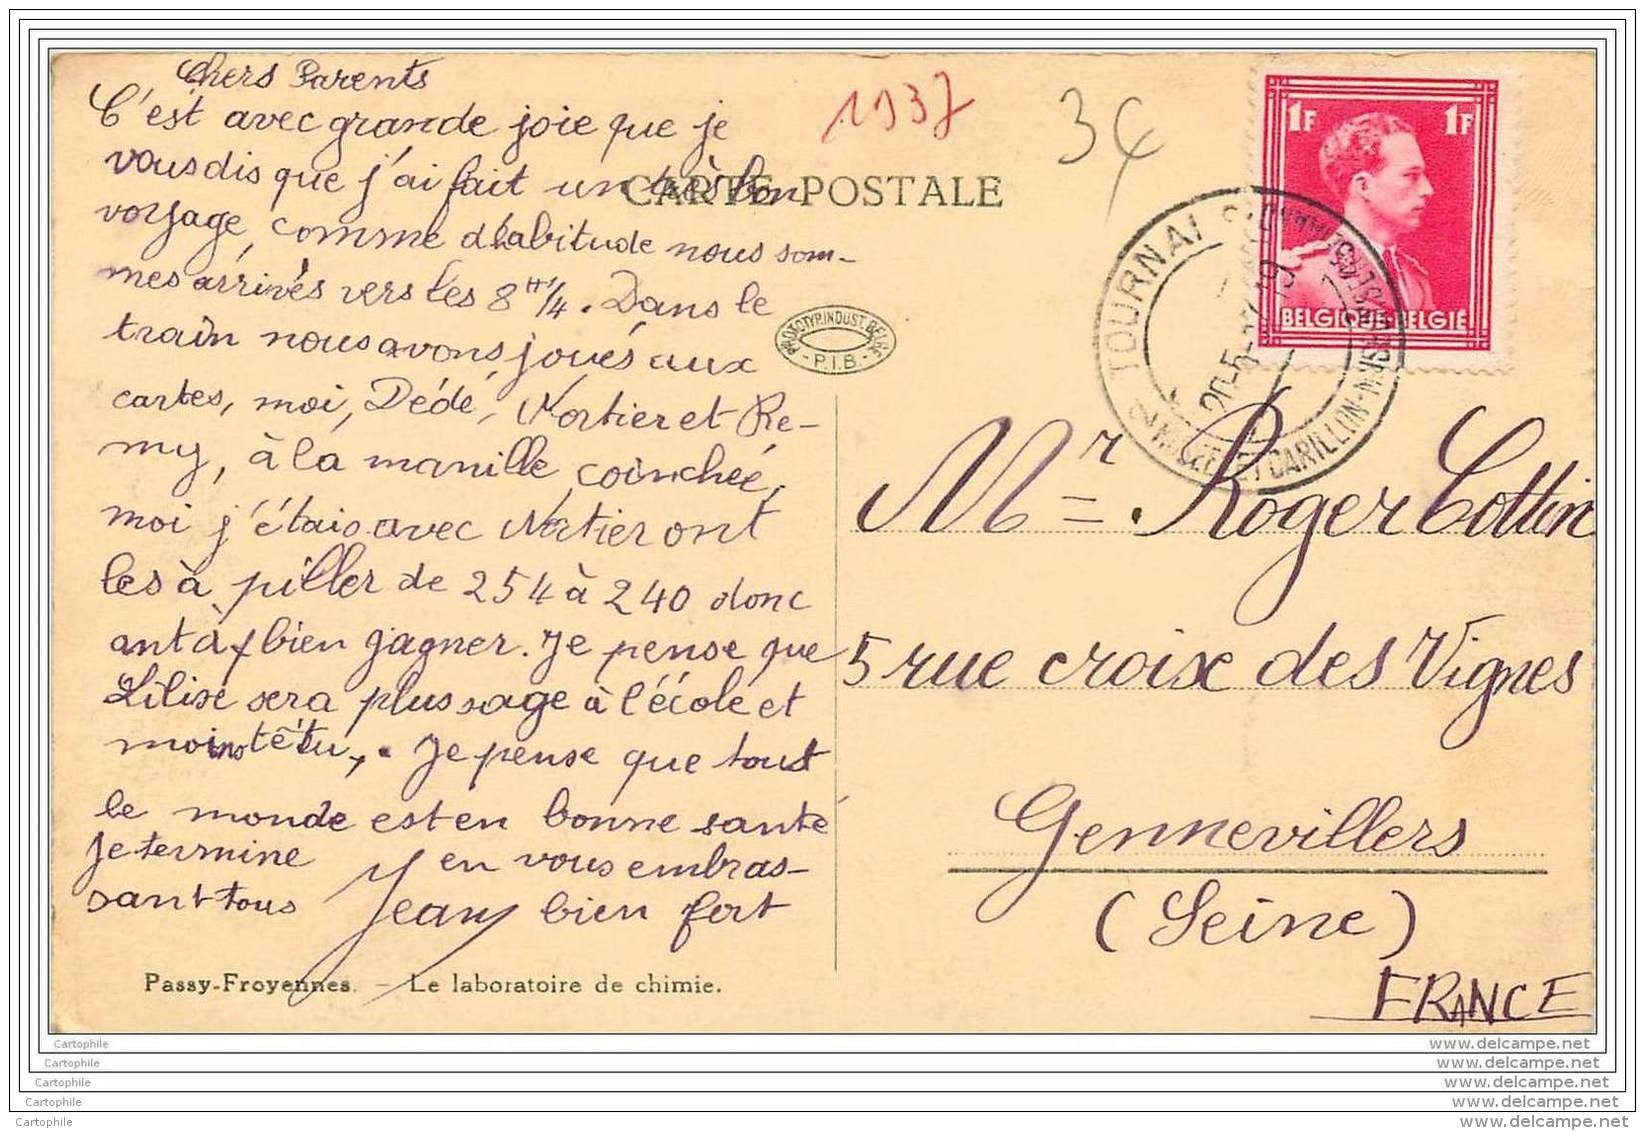 Chers Parents
C'est avec grande joie que je
vous dis que j'ai fait un très bon
voyage, comme d'habitude nous som-
mes arrivés vers les 8 H 1/4. Dans le
train nous avons joués aux
cartes, moi, Dédé, Nortier et Re-
my, à la manille coinchée,
moi j'étais avec Nortier ont
les à piller de 254 à 240 donc
ant à bien gagner. Je pense que
Lilise sera plus sage à l'école et
moins têtu,. Je pense que tout
le monde est en bonne santé
Je termine en vous embras-
sant tous bien fort
Jean
Passy-Froyennes. - Le laboratoire de chimie.
1937
34
CARTE POSTALE
PHOTOTYP. INDUST. BELGE
- P.I.B. -
1F 1F
BELGIQUE BELGIE
TOURNAI
20-5- 19
CARILLON
Mr. Roger Cottin
5 rue croix des Vignes
Gennevillers
(Seine)
FRANCE
Cartophile
Cartophile
Cartophile
Cartophile
Cartophile
www.delcampe.net
www.delcampe.net
www.delcampe.net
www.delcampe.net
www.delcampe.net